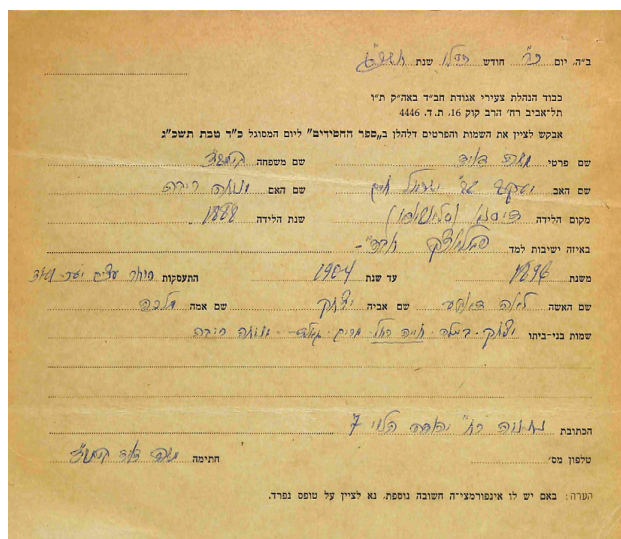 ב"ה, יום כ"ו חודש כסלו שנת
כבוד הנהלת צעירי אגודת חב"ד באה"ק ת"ו
תל־אביב רח' הרב קוק 16, ת. ד. 4446
אבקש לציין את השמות והפרטים דלהלן ב„ספר החסידים" ליום המסוגל כ"ד טבת תשכ"ג
שם פרטי משה דוד שם משפחה
שם האב יעקב ישראל חיים שם האם חנה רירה
מקום הלידה שנת הלידה 1888
באיזה ישיבות למד
משנת 1896 עד שנת 1904 התעסקות
שם האשה לאה שם אביה יצחק שם אמה מלכה
שמות בני־ביתו יצחק חיה רחל מרים
הכתובת נתניה רח' יהודה הלוי 7
טלפון מס'
חתימה משה דוד
הערה: באם יש לו אינפורמצי־ה חשובה נוספת, נא לציין על טופס נפרד.